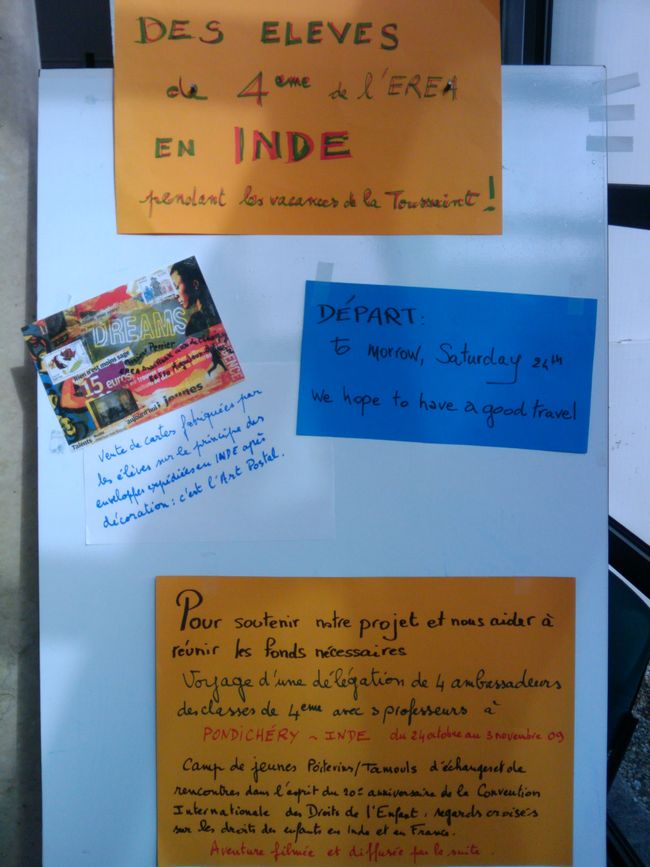 DES ELEVES
de 4eme de l'EREA
EN INDE
pendant les vacances de la Toussaint !
DREAMS
rien n'est moins sage
15 euros
aujourd'hui jeunes
Talents
DÉPART:
to morrow, Saturday 24th
We hope to have a good travel
Vente de cartes fabriquées par
les élèves sur le principe des
enveloppes expédiées en INDE après
décoration : c'est l'Art Postal.
Pour soutenir notre projet et nous aider à
réunir les fonds nécessaires
Voyage d'une délégation de 4 ambassadeurs
des classes de 4eme avec 3 professeurs à
PONDICHÉRY ~ INDE du 24 octobre au 3 novembre 09
Camp de jeunes Poitevins/Tamouls d'échanges et de
rencontres dans l'esprit du 20e anniversaire de la Convention
Internationale des Droits de l'Enfant : regards croisés
sur les droits des enfants en Inde et en France.
Aventure filmée et diffusée par la suite.